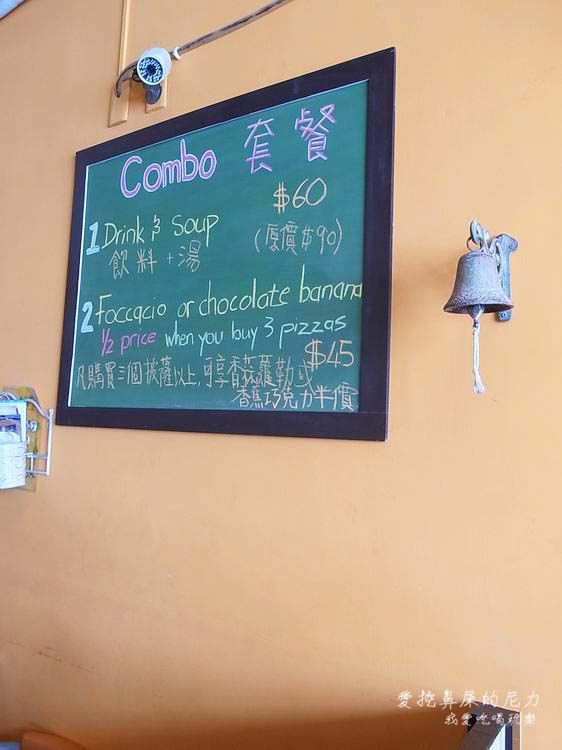 Combo 套餐
$60
1 Drink & Soup
(原價$90)
飲料+湯
2 Foccacio or chocolate banana
1/2 price when you buy 3 pizzas
$45
凡購買三個披薩以上,可享香菇羅勒或
香蕉巧克力半價
愛挖鼻屎的尼力
我愛吃喝玩樂